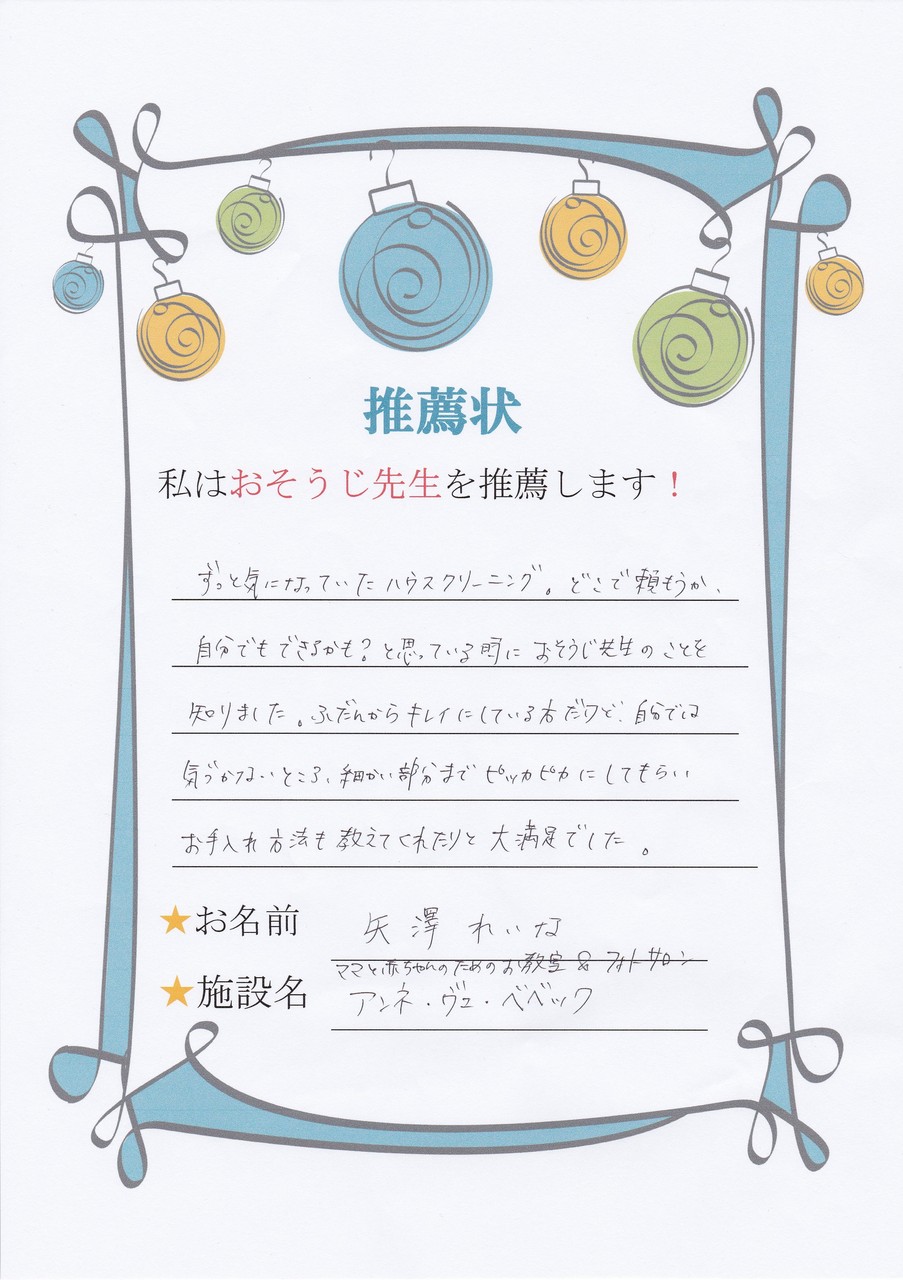 推薦状
私はおそうじ先生を推薦します！
ずっと気になっていたハウスクリーニング。どこで頼もうか、
自分でもできるかも？と思っている時におそうじ先生のことを
知りました。ふだんからキレイにしている方だけど、自分では
気づかないところ、細かい部分までピッカピカにしてもらい
お手入れ方法も教えてくれたりと大満足でした。
★お名前 矢澤 れいな
ママと赤ちゃんのためのお教室＆フォトサロン
★施設名 アンネ・ヴュ・ベベック